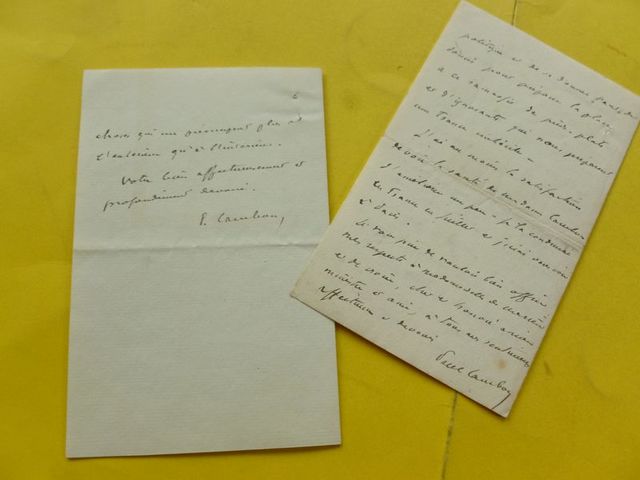 6
choses qui me préoccupent plus à
l'extérieur qu'à l'intérieur.
Votre bien affectueusement et
profondément dévoué.
P. Cambon,
politique et de se donner
pour préparer la place
a ce ramassis de
et d'ignorants qui nous préparent
une France
J'ai au moins la satisfaction
de voir la santé de madame Cambon
s'améliorer un peu - je la conduirai
en France en juillet et j'irai
à
Je vous prie de vouloir bien offrir
mes respects à mademoiselle de
et de croire, cher et honoré ancien
ministre et ami, à tous mes sentiments
affectueux et dévoués
Paul Cambon